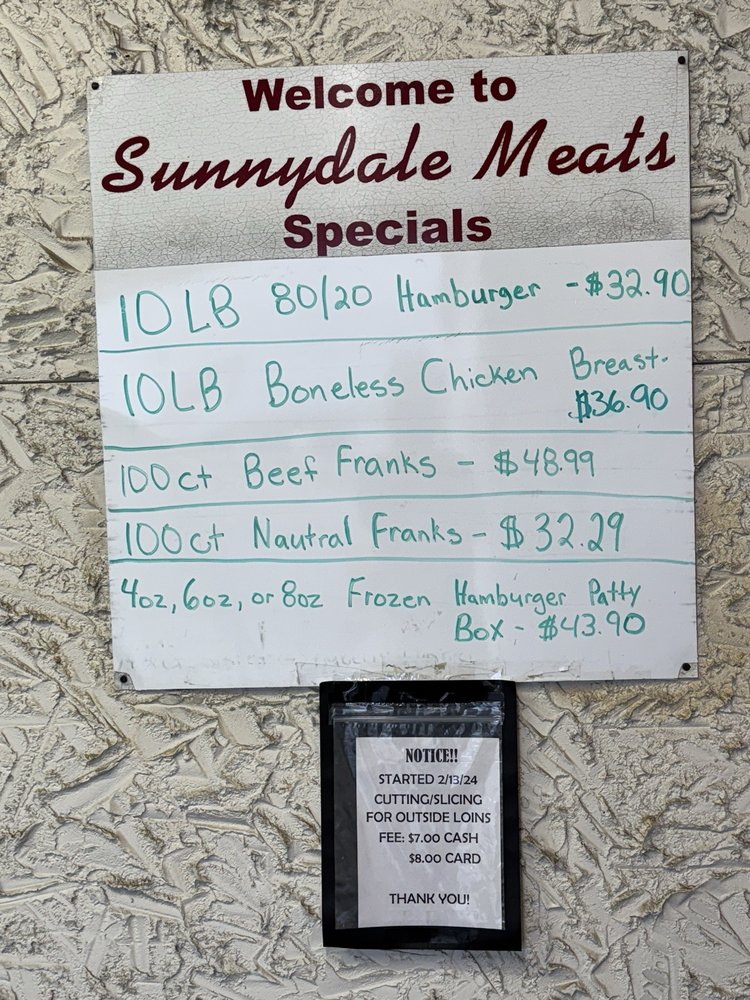 Welcome to
Sunnydale Meats
Specials
10 LB 80/20 Hamburger - $32.90
10 LB Boneless Chicken Breast-
$36.90
100ct Beef Franks - $48.99
100ct Nautral Franks - $32.29
4oz, 6oz, or 8oz Frozen Hamburger Patty
Box - $43.90
NOTICE!!
STARTED 2/13/24
CUTTING/SLICING
FOR OUTSIDE LOINS
FEE: $7.00 CASH
$8.00 CARD
THANK YOU!